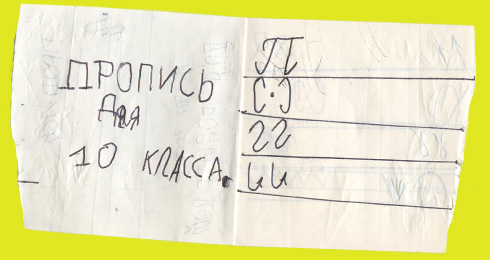 ПРОПИСЬ
ДЛЯ
10 КЛАССА.
П
С·Э
гг
ии